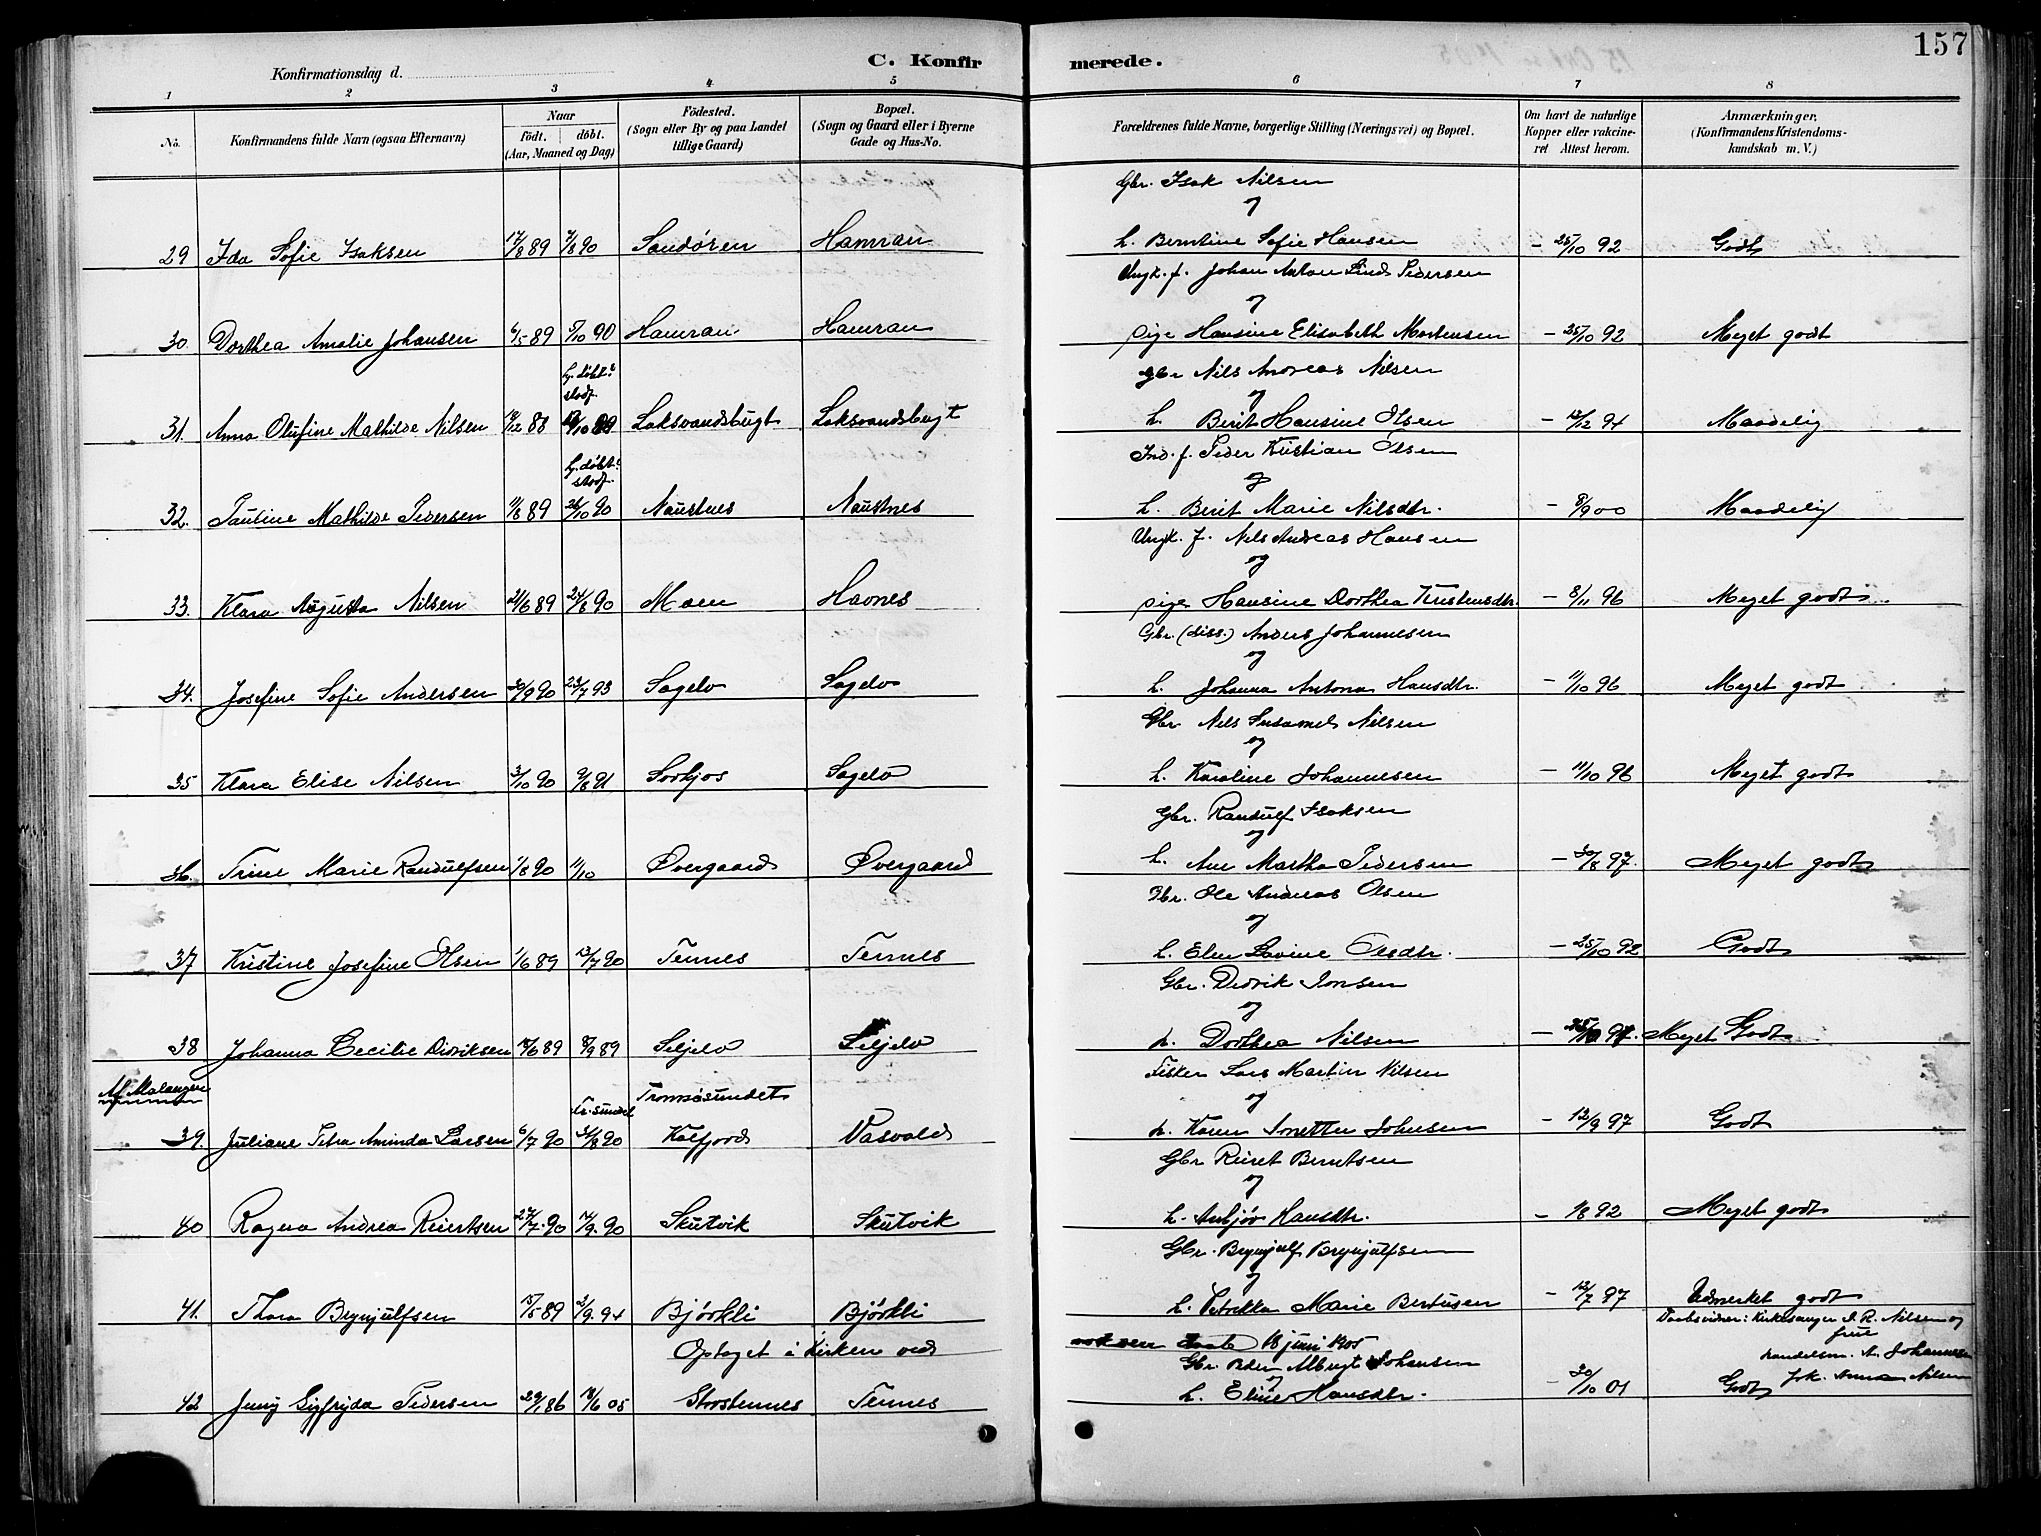 157
Konfirmationsdag d.
C. Konfirmerede.
1 2 3 4 5 6 7 8
No. Konfirmandens fulde Navn (ogsaa Efternavn) Naar født. døbt. (Aar, Maaned og Dag) Fødested. (Sogn eller By og paa Landet tillige Gaard) Bopæl. (Sogn og Gaard eller i Byerne Gade og Hus-No. Forældrenes fulde Navne, borgerlige Stilling (Næringsvei) og Bopæl. Om havt de naturlige Kopper eller vakcineret Attest herom. Anmærkninger. (Konfirmandens Kristendomskundskab m. V.)
Gbr. Isak Nilsen
og
29 Ida Sofie Isaksen 17/8 89 7/8 90 Sandøren Hamran h. Berntine Sofie Hansen - 25/10 92 Godt
Ungk. f. Johan Anton Lind Pedersen
og
30. Dorthea Amalie Johansen 6/5 89 5/10 90 Hamran Hamran pige Hansine Elisabeth Mortensen - 25/10 92 Meget godt
Gbr Nils Andreas Nilsen
hj. døbt. stadf.
og
31. Anna Olufine Mathilde Nilsen Laksvandsbugt Laksvandsbugt h. Berit Hansine Olsen - 12/12 94 Maadelig
Ind. f. Peder Kristian Olsen
hj. døbt. stadf.
og
32. Pauline Mathilde Pedersen 11/8 89 26/10 90 Naustnes Naustnes h. Berit Marie Nilsdtr. - 8/9 00 Maadelig
Ungk. f. Nels Andreas Hansen
og
33. Klara Augusta Nilsen 21/6 89 24/8 90 Moen Havnes pige Hansine Dorthea Kristensdtr. - 8/11 96 Meget godt
Gbr. (diss.) Anders Johannesen
og
34. Josefine Sofie Andersen 30/9 90 23/7 93 Sagelv Sagelv h. Johanna Antona Hansdtr. - 11/10 96 Meget godt
Gbr Nels Susamel Nilsen
og
35 Klara Elise Nilsen 3/10 90 9/8 91 Sorkjos Sagelv h. Karoline Johannesen - 11/10 96 Meget godt
Gbr. Randulf Isaksen
og
36. Trine Marie Randulfsen 1/8 90 11/10 Øvergaard Øvergaard h. Ane Martha Pedersen - 30/8 97. Meget godt
Gbr. Ole Andreas Olsen
og
37 Kristine Josefine Olsen 1/6 89 13/7 90 Tennes Tennes h. Elen Lovine Olsdtr. - 25/10 92 Godt
Gbr. Didrik Jonsen
og
38 Johanna Cecilie Didriksen 18/6 89 8/9 89 Seljelv Seljelv h. Dorthea Nilsen Meget Godt
Af Malangen
Fisker Lars Martin Nilsen
Tr. sundet Tromsøsundet
og
39. Juliane Petra Aminda Larsen 6/7 90 31/8 90 Kalfjord Vasvald h. Karen Jonette Johnsen - 12/9 97 Godt
Gbr Reiret Berntsen
og
40 Ragna Andrea Reiertsen 27/7 90 14/9 90 Skutvik Skutvik h. Anbjør Hansdtr. - 1/8 92 Meget godt
Gbr. Brynjulf Brynjulfsen
og
41. Thora Brynjulfsen 15/5 89 3/9 94 Bjørkli Bjørkli h. Petrikka Marie Bertusen - 12/7 97 Udmerket godt
Optaget i Kirken ved 18 juni 1905
Daabsvidner: Kirkesanger J. R. Nilsen og frue
Gbr. Peder Albrigt Johansen
handelsm. A. Johannesen
og
Jok. Anna Nilsen
42 Jenny Sigfryda Pedersen 29/1 86 18/6 05 Storstennes Tennes h. Eline Hansdtr. - 30/10 01 Godt